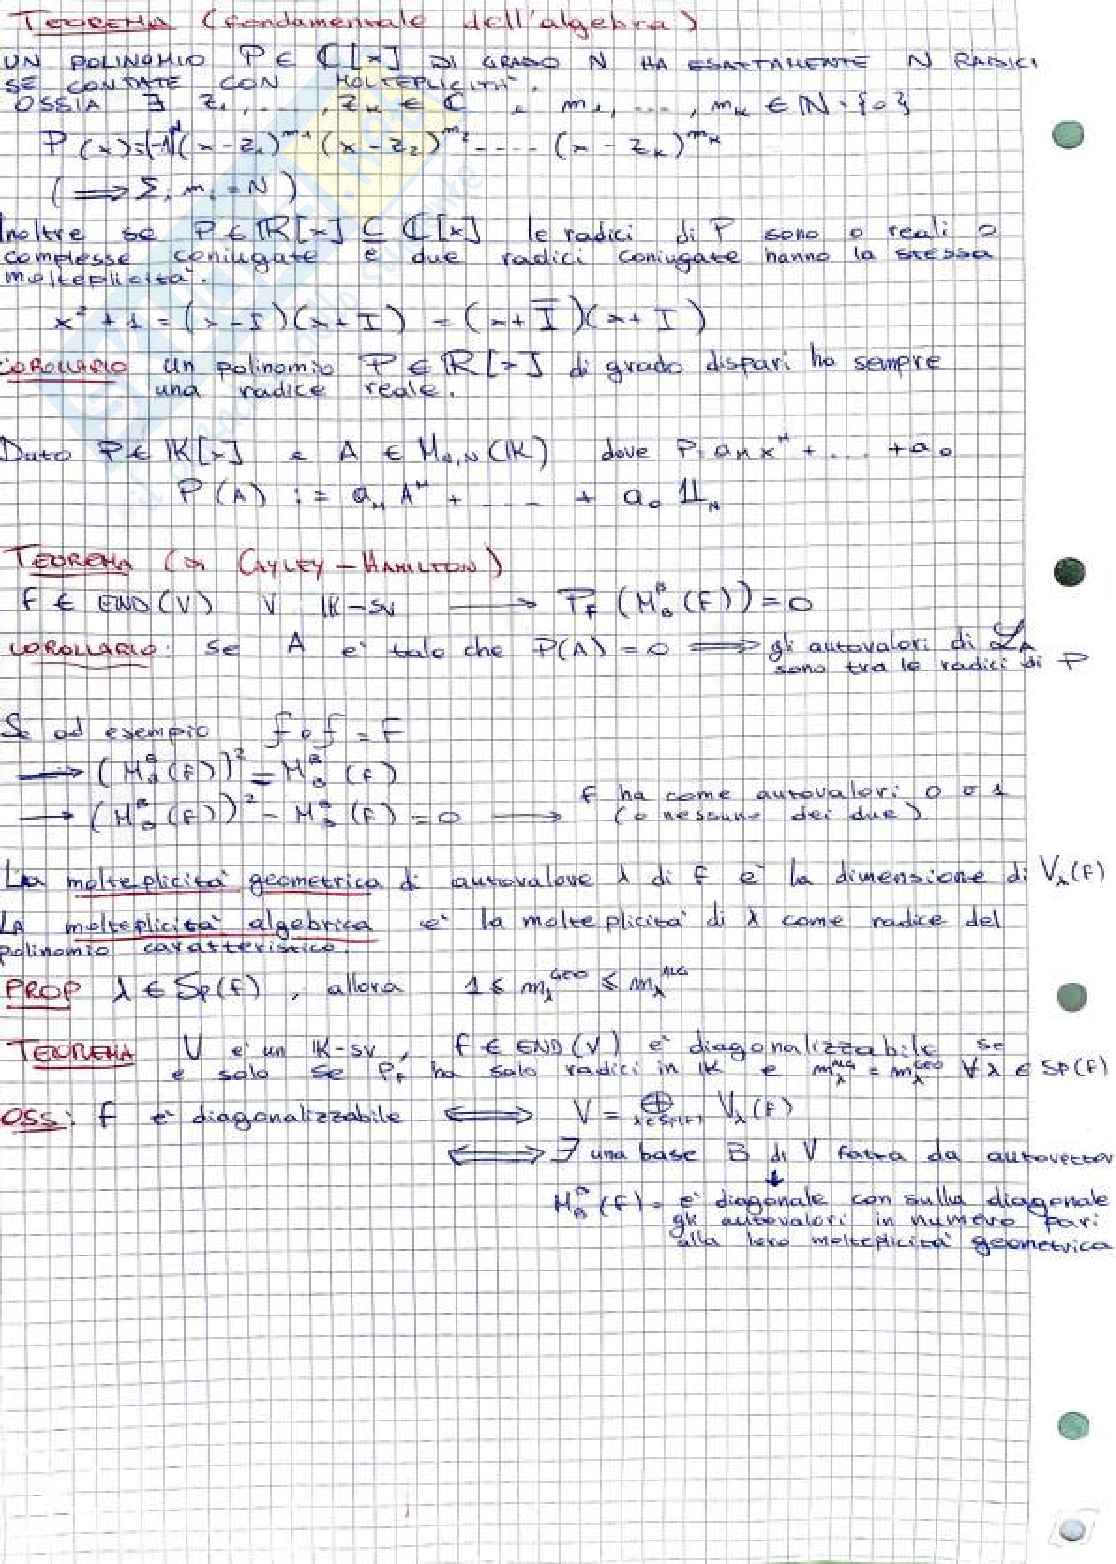 TEOREMA (fondamentale dell'algebra)
UN POLINOMIO P ∈ ℂ[x] DI GRADO N HA ESATTAMENTE N RADICI
SE CONTATE CON MOLTEPLICITÀ.
OSSIA ∃ z₁, ..., z_k ∈ ℂ e m₁, ..., m_k ∈ ℕ∖{0}
P(x)=(-1)^N(x-z₁)^m₁ (x-z₂)^m₂ ---- (x-z_k)^m_k
(⟹ Σᵢ mᵢ = N)
Inoltre se P ∈ ℝ[x] ⊆ ℂ[x] le radici di P sono o reali o
complesse coniugate e due radici coniugate hanno la stessa
molteplicità.
x² + 1 = (x-I)(x+I) = (x+Ī)(x+I)
COROLLARIO un polinomio P ∈ ℝ[x] di grado dispari ha sempre
una radice reale.
Dato P ∈ 𝕂[x] e A ∈ M_{N,N}(𝕂) dove P = a_N x^N + ... + a₀
P(A) := a_N A^N + ... + a₀ 𝟙_N
TEOREMA (di CAYLEY-HAMILTON)
f ∈ END(V) V 𝕂-SV ⟶ P_f (M_B^B(f)) = 0
COROLLARIO: se A è tale che P(A) = 0 ⟹ gli autovalori di ℒ_A
sono tra le radici di P
Se ad esempio f∘f = f
⟶ (M_B^B(f))² = M_B^B(f)
⟶ (M_B^B(f))² - M_B^B(f) = 0 ⟶ f ha come autovalori 0 o 1
(o nessuno dei due)
La molteplicità geometrica di autovalore λ di f è la dimensione di V_λ(f)
LA molteplicità algebrica è la molteplicità di λ come radice del
polinomio caratteristico.
PROP λ ∈ Sp(f), allora 1 ≤ m_λ^GEO ≤ m_λ^ALG
TEOREMA V è un 𝕂-SV, f ∈ END(V) è diagonalizzabile se
e solo se P_f ha solo radici in 𝕂 e m_λ^ALG = m_λ^GEO ∀ λ ∈ Sp(f)
OSS: f è diagonalizzabile ⟺ V = ⊕_{λ∈Sp(f)} V_λ(f)
⟺ ∃ una base B di V fatta da autovettor
↓
M_B^B(f) = è diagonale con sulla diagonale
gli autovalori in numero pari
alla loro molteplicità geometrica